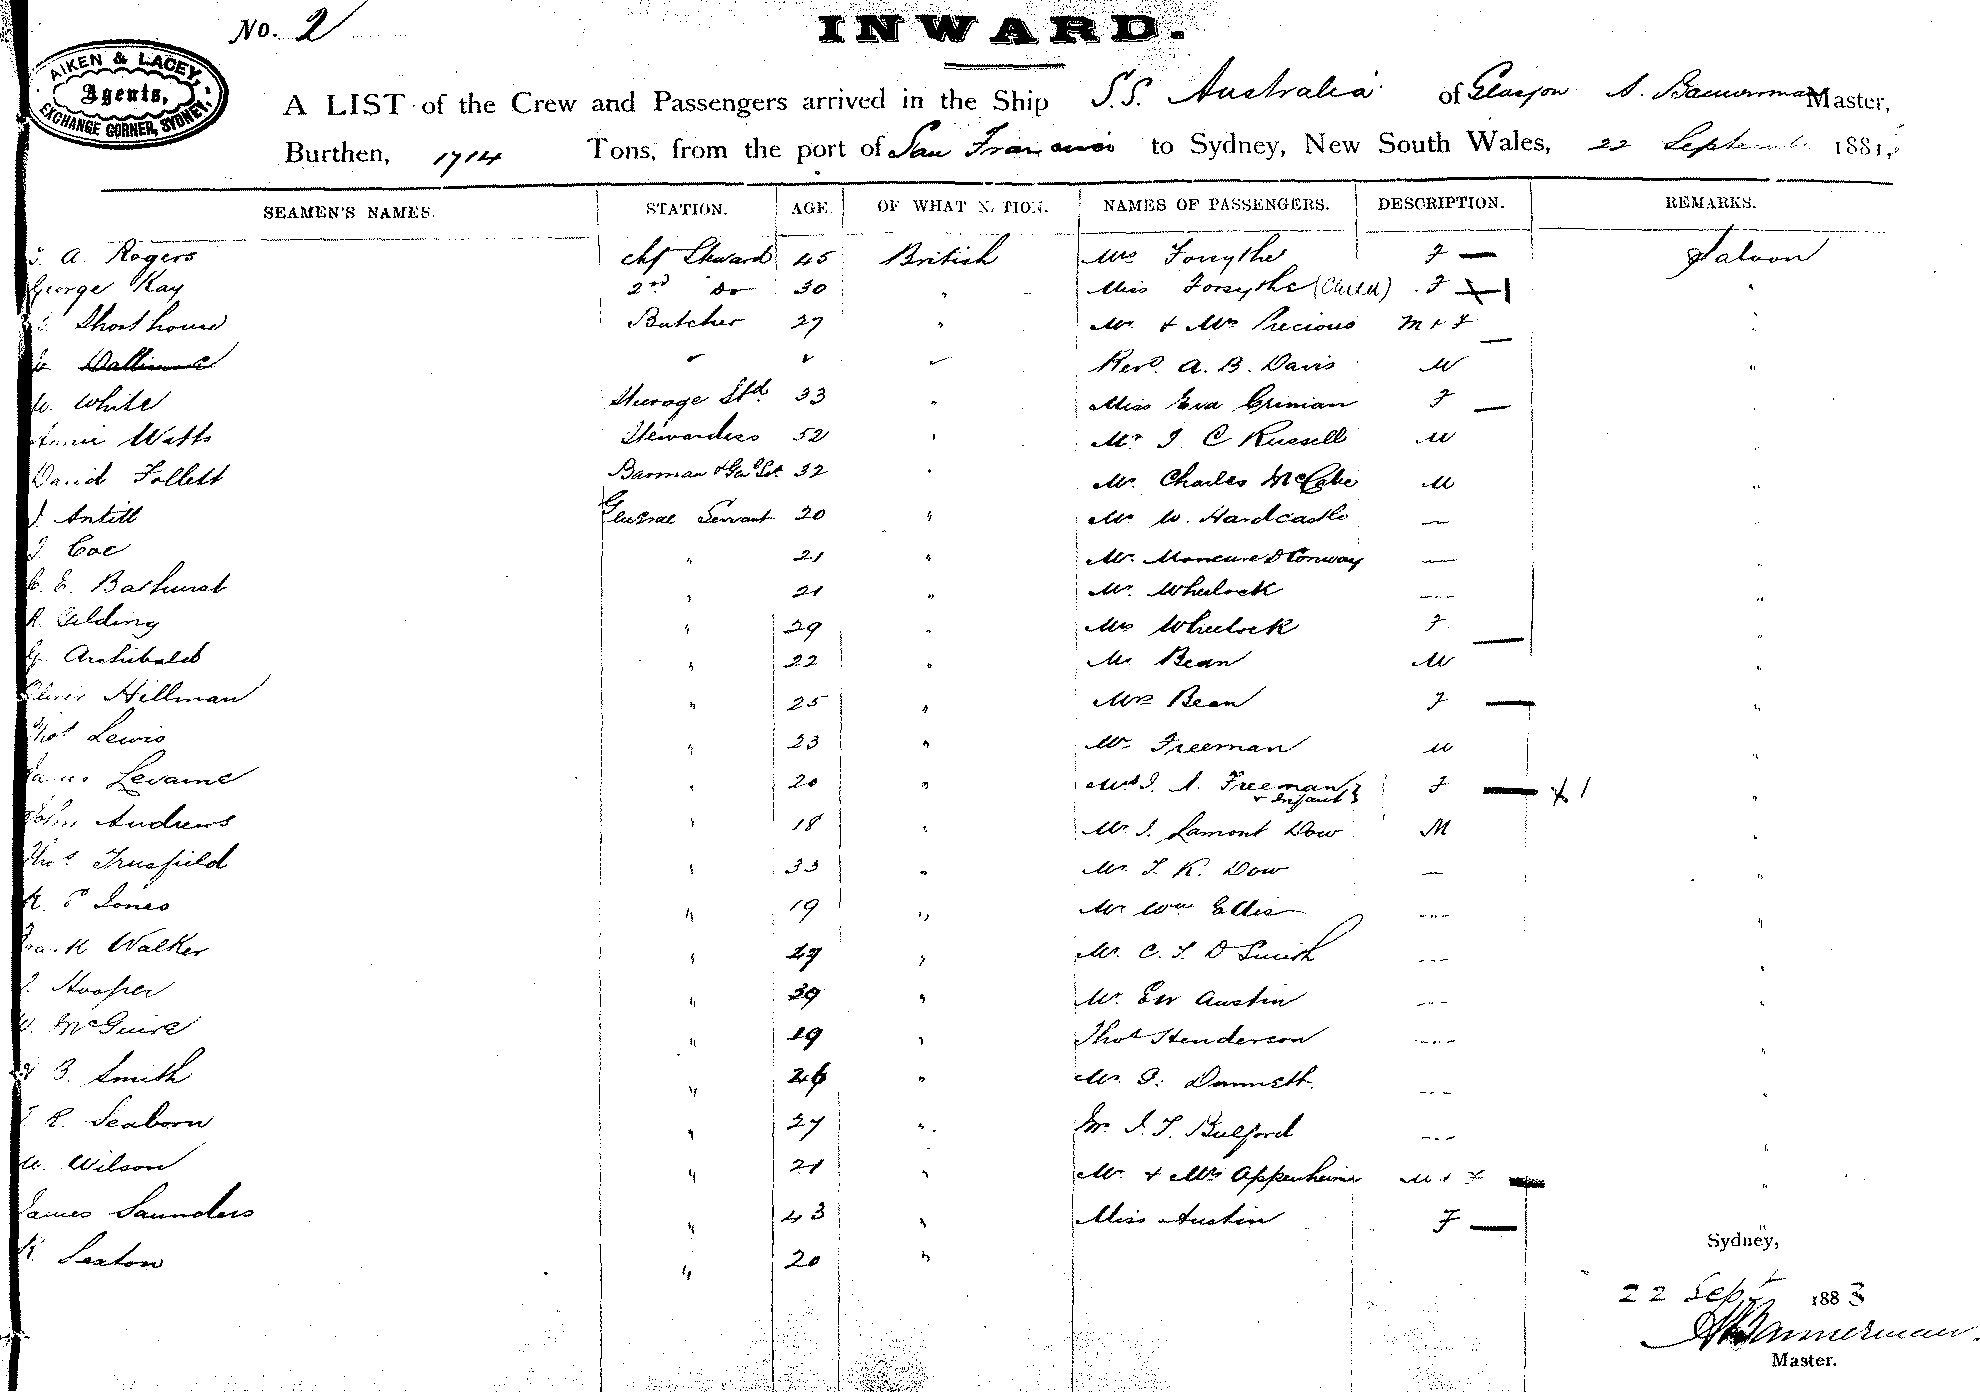 No. 2
INWARD.
AIKEN & LACEY,
Agents,
EXCHANGE CORNER, SYDNEY,
A LIST of the Crew and Passengers arrived in the Ship S.S. Australia of Glasgow A. Bannerman Master,
Burthen, 1714 Tons, from the port of San Francisco to Sydney, New South Wales, 22 September 188
SEAMEN'S NAMES. STATION. AGE. OF WHAT N TION. NAMES OF PASSENGERS. DESCRIPTION. REMARKS.
A. Rogers chf Steward 45 British Mrs Forsythe F — Saloon
George Kay 2nd Do 30 " Miss Forsythe (Child) F "
Shorthouse Butcher 27 " Mr & Mrs Precious M & F "
" " " Revd. A. B. Davis M "
W. White Steerage Std 33 " Miss Eva Crinian F — "
Annie Watts Stewardess 52 " Mr J C Russell M
David Follett Barman & 32 " Mr Charles McCabe M "
J. Antill General Servant 20 " Mr W. Hardcastle — "
J. Coe " 21 " Mr. Moncure D Conway — "
C. E. Bathurst " 21 " Mr. Wheelock — "
R. Gilding " 29 " Mrs Wheelock F — "
G. Archibald " 22 " Mr Bean M "
Oliver Hillman " 25 " Mrs Bean F — "
Thos Lewis " 23 " Mr. Freeman M "
James Levaine " 20 " Mrs J. A. Freeman & Infant F — X 1 "
John Andrews " 18 " Mr J. Lamont Dow M "
Thos. Truefield " 33 " Mr. T. K. Dow — "
R. P Jones " 19 " Mr Wm Ellis — "
Frank Walker " 29 " Mr. C. S. D Smith — "
J. Hooper " 39 " Mr. EW Austin — "
W. McGuire " 19 " Thos Henderson — "
B. Smith " 26 " Mr. Dannett. — "
R. Seaborn " 27 " Mr. J. T. Bulford — "
W. Wilson " 21 " Mr. & Mrs Appenheim M & F — "
James Saunders " 43 " Miss Austin F —
R. Seaton " 20 "
Sydney,
22 Sept 1883
A Bannerman
Master.